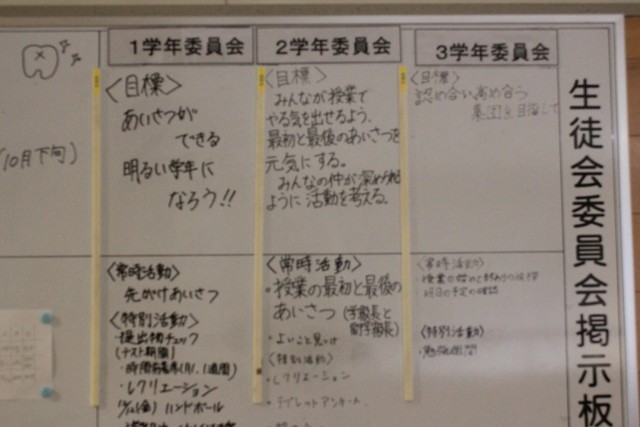 生徒会委員会掲示板
1学年委員会
<目標>
あいさつが
できる
明るい学年に
なろう!!
<常時活動>
先がけあいさつ
<特別活動>
・提出物チェック
(テスト期間)
・レクリエーション
ハンドボール
2学年委員会
<目標>
みんなが授業で
やる気を出せるよう、
最初と最後のあいさつを
元気にする。
みんなの仲が深め
ように活動を考える。
<常時活動>
・授業の最初と最後の
あいさつ(学級長と
副学級長)
・よいこと見つけ
<特別活動>
・レクリエーション
・タブレットアンケート
3学年委員会
<目標>
認め合い高め合う
集団を目指して
<常時活動>
<特別活動>
(10月下旬)